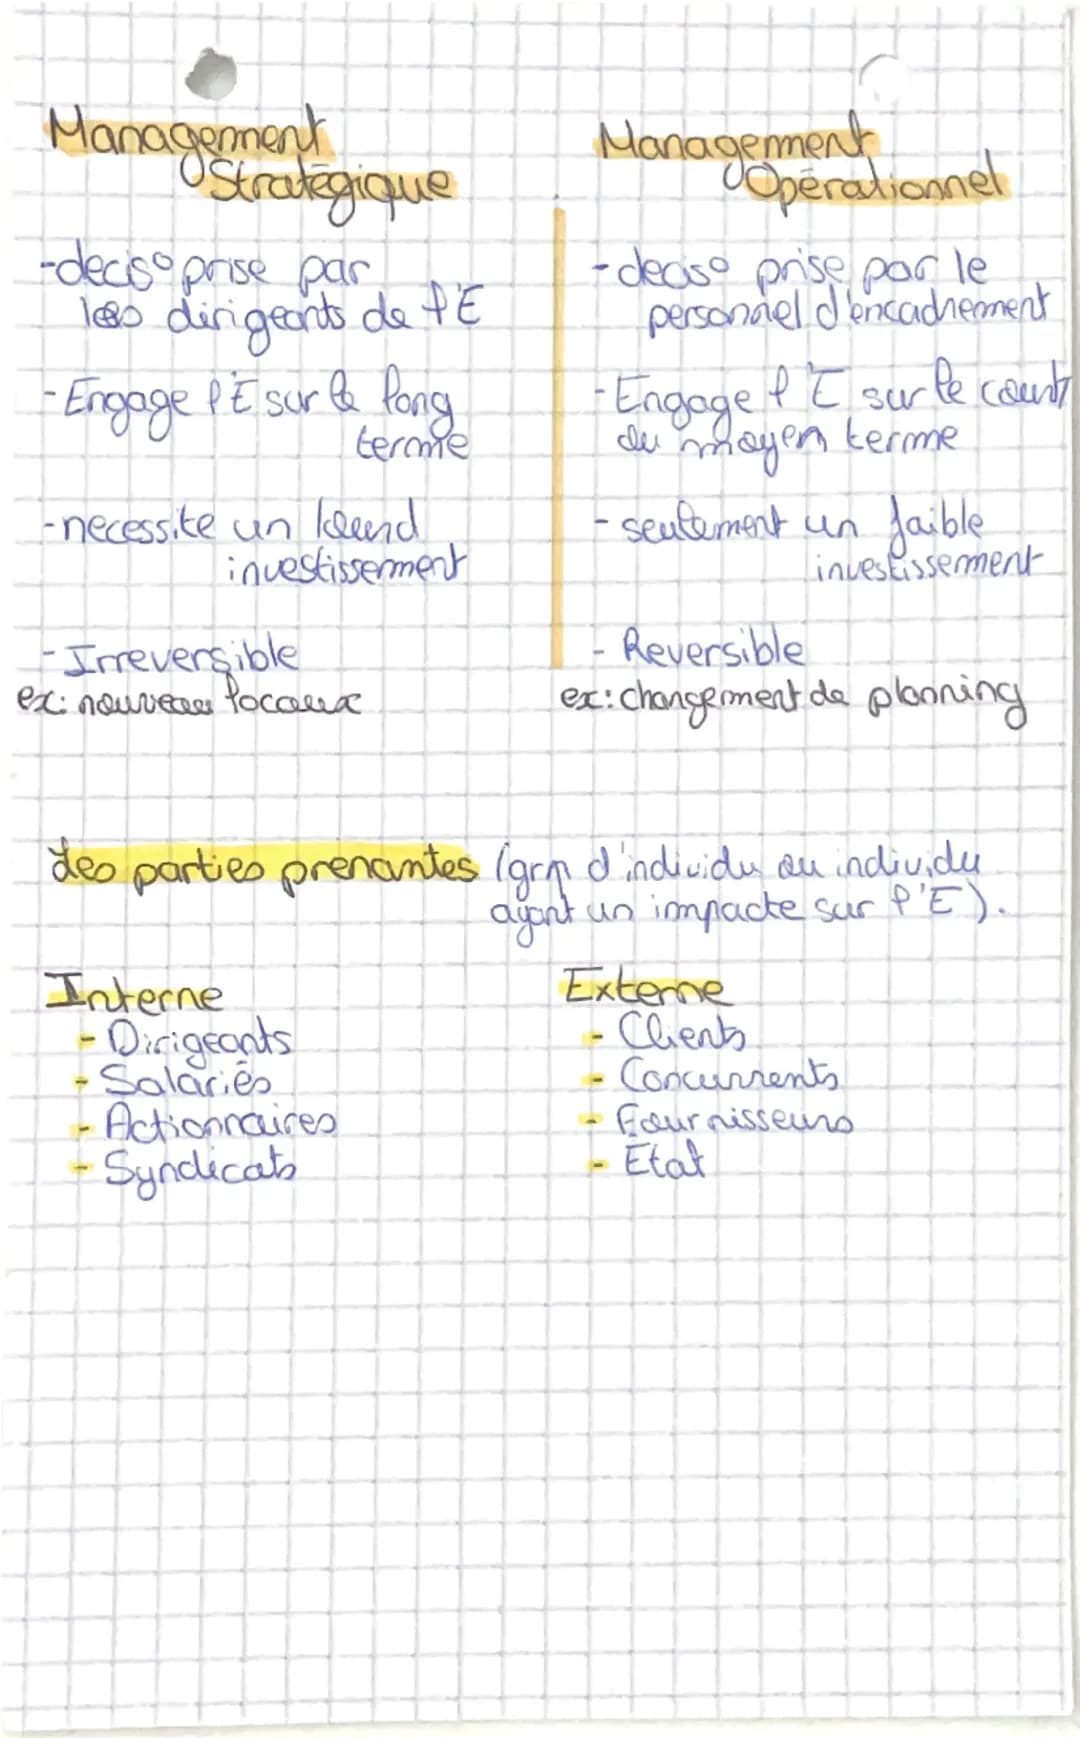 Management
Stratégique
- deciso prise par
les dirigeants de l'E
- Engage l'E sur le long
terme
- necessite un lound
investissement
- Irreversible
ex: nouveau locaux
Management
Opérationnel
- deciso prise par le
personnel d'encadrement
- Engage l'E sur le court
ou moyen terme
- seulement un faible
investissement
- Reversible
ex: changement de planning
Les parties prenantes (grp d'individu ou individu
ayant un impacte sur l'E).
Interne
- Dirigeants
- Salariés
- Actionnaires
- Syndicats
Externe
- Clients
- Concurrents
- Fournisseurs
- État